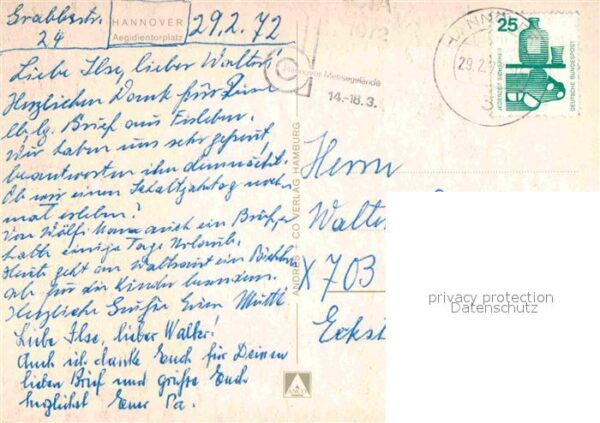 Grabbestr.
24
HANNOVER
Aegidientorplatz
29.2.72
Liebe Ilse, lieber Walter!
Herzlichen Dank für Deine
lb. Brief aus Eisleben.
Wir haben uns sehr gefreut,
beantworten ihn demnächst.
Ob wir einen Schaltjahrtag noch
mal erleben?
Von ein
hatte einige Tage Urlaub.
Heute geht an Waltraut ein
ab für die Kinder besonders.
Herzliche Grüße Eure Mutti
Liebe Ilse, lieber Walter!
Auch ich danke Euch für Deinen
lieben Brief und grüße Euch
herzlichst Euer Pa.
ANDRES + CO VERLAG HAMBURG
Hannover Messegelände
14.-18.3.
HANN
29.2.
3
25
JEDERZEIT SICHERHEIT
DEUTSCHE BUNDESPOST
Herrn
Walter
X 703
privacy protection
Datenschutz
ANCO